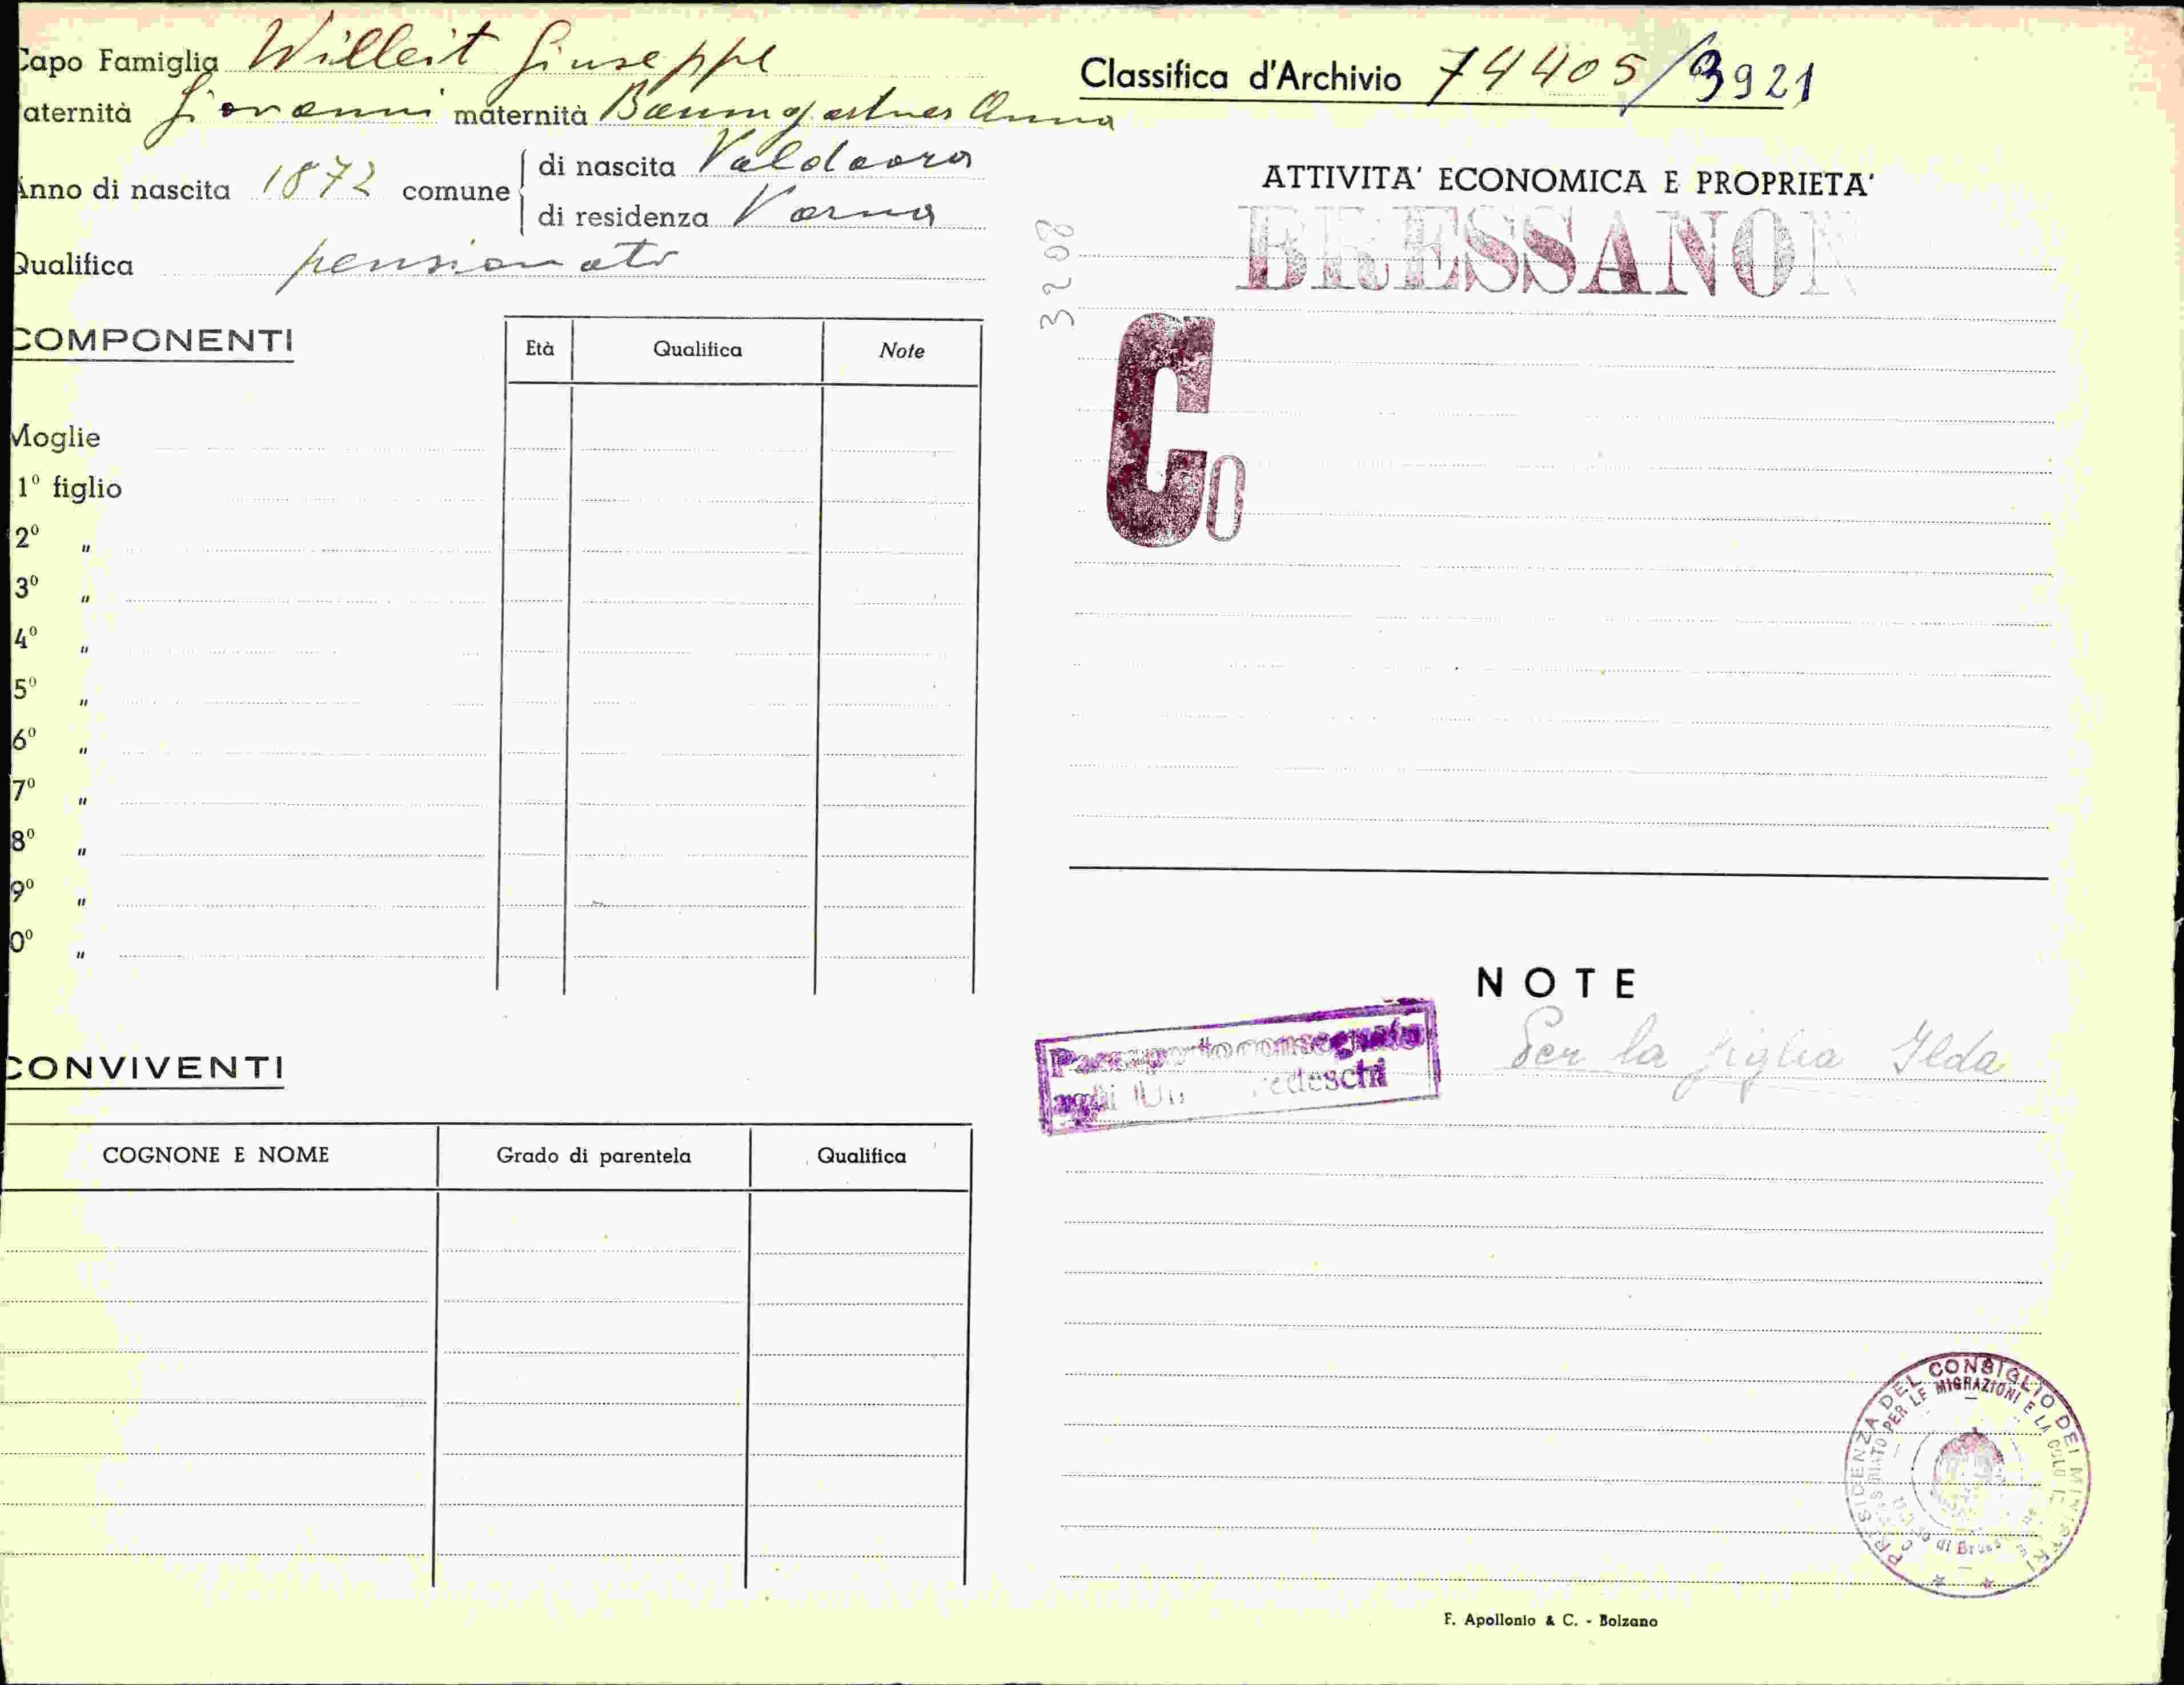 Capo Famiglia Willeit Giuseppe
aternità Giovanni maternità Baumgartner Anna
Anno di nascita 1872 comune di nascita Valdaora
di residenza Varna
Qualifica pensionato
COMPONENTI
Età Qualifica Note
Moglie
1° figlio
2° "
3° "
4° "
5° "
6° "
7° "
8° "
9° "
0° "
CONVIVENTI
COGNONE E NOME Grado di parentela Qualifica
Classifica d'Archivio 74405/3921
ATTIVITA' ECONOMICA E PROPRIETA'
BRESSANON
3208
Co
NOTE
Passaporto consegnato
agli tedeschi
Per la figlia Ilda
PRESIDENZA DEL CONSIGLIO DEI MINISTRI
PER LE MIGRAZIONI E LA
di
F. Apollonio & C. - Bolzano